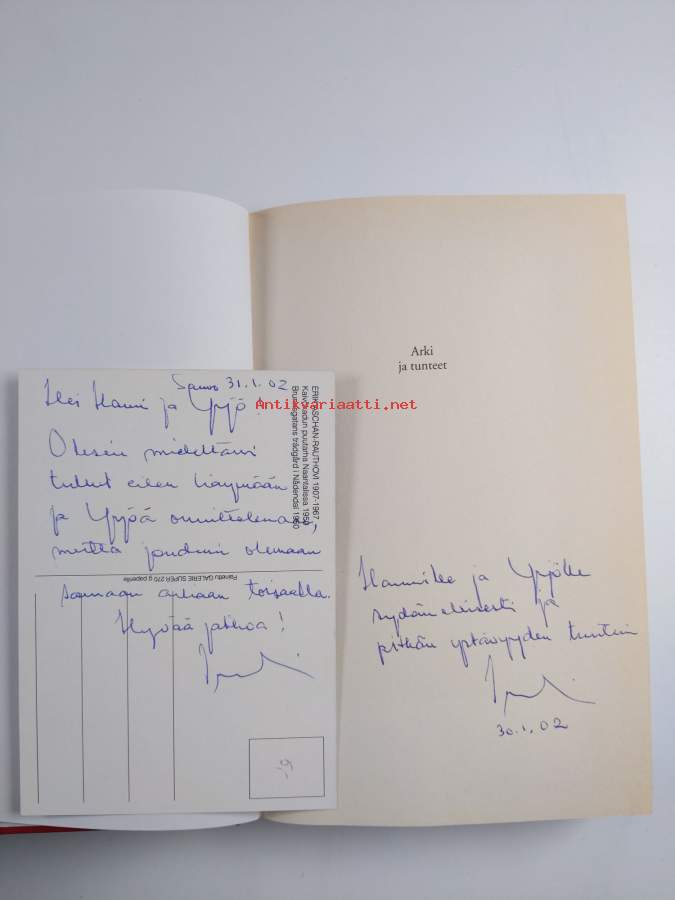 Sauvo 31.1.02
Hei Hannu ja Yrjö!
Olisin mielelläni
tullut eilen
ja Yrjöä onnittelemaan,
mutta jouduin olemaan
samaan aikaan toisaalla.
Hyvää jatkoa!
ERIK -SCHAN-RAUTHOVI 1907-1967
puutarha Naantalissa 1950
trädgård i Nådendal 1950
Painettu GALERIE SUPER 270 g paperille
19
Antikvariaatti.net
Arki
ja tunteet
ja Yrjölle
sydämellisesti ja
pitkän ystävyyden tuntein
30.1.02